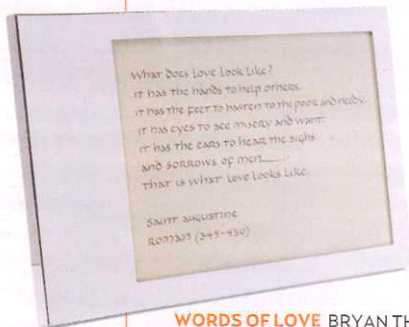 What does Love Look Like?
it has the hands to help others.
it has the feet to hasten to the poor and needy.
it has eyes to see misery and want.
it has the ears to hear the sighs
and sorrows of men
that is what Love Looks Like.
Saint augustine
Roman (345-430)
WORDS OF LOVE BRYAN TH